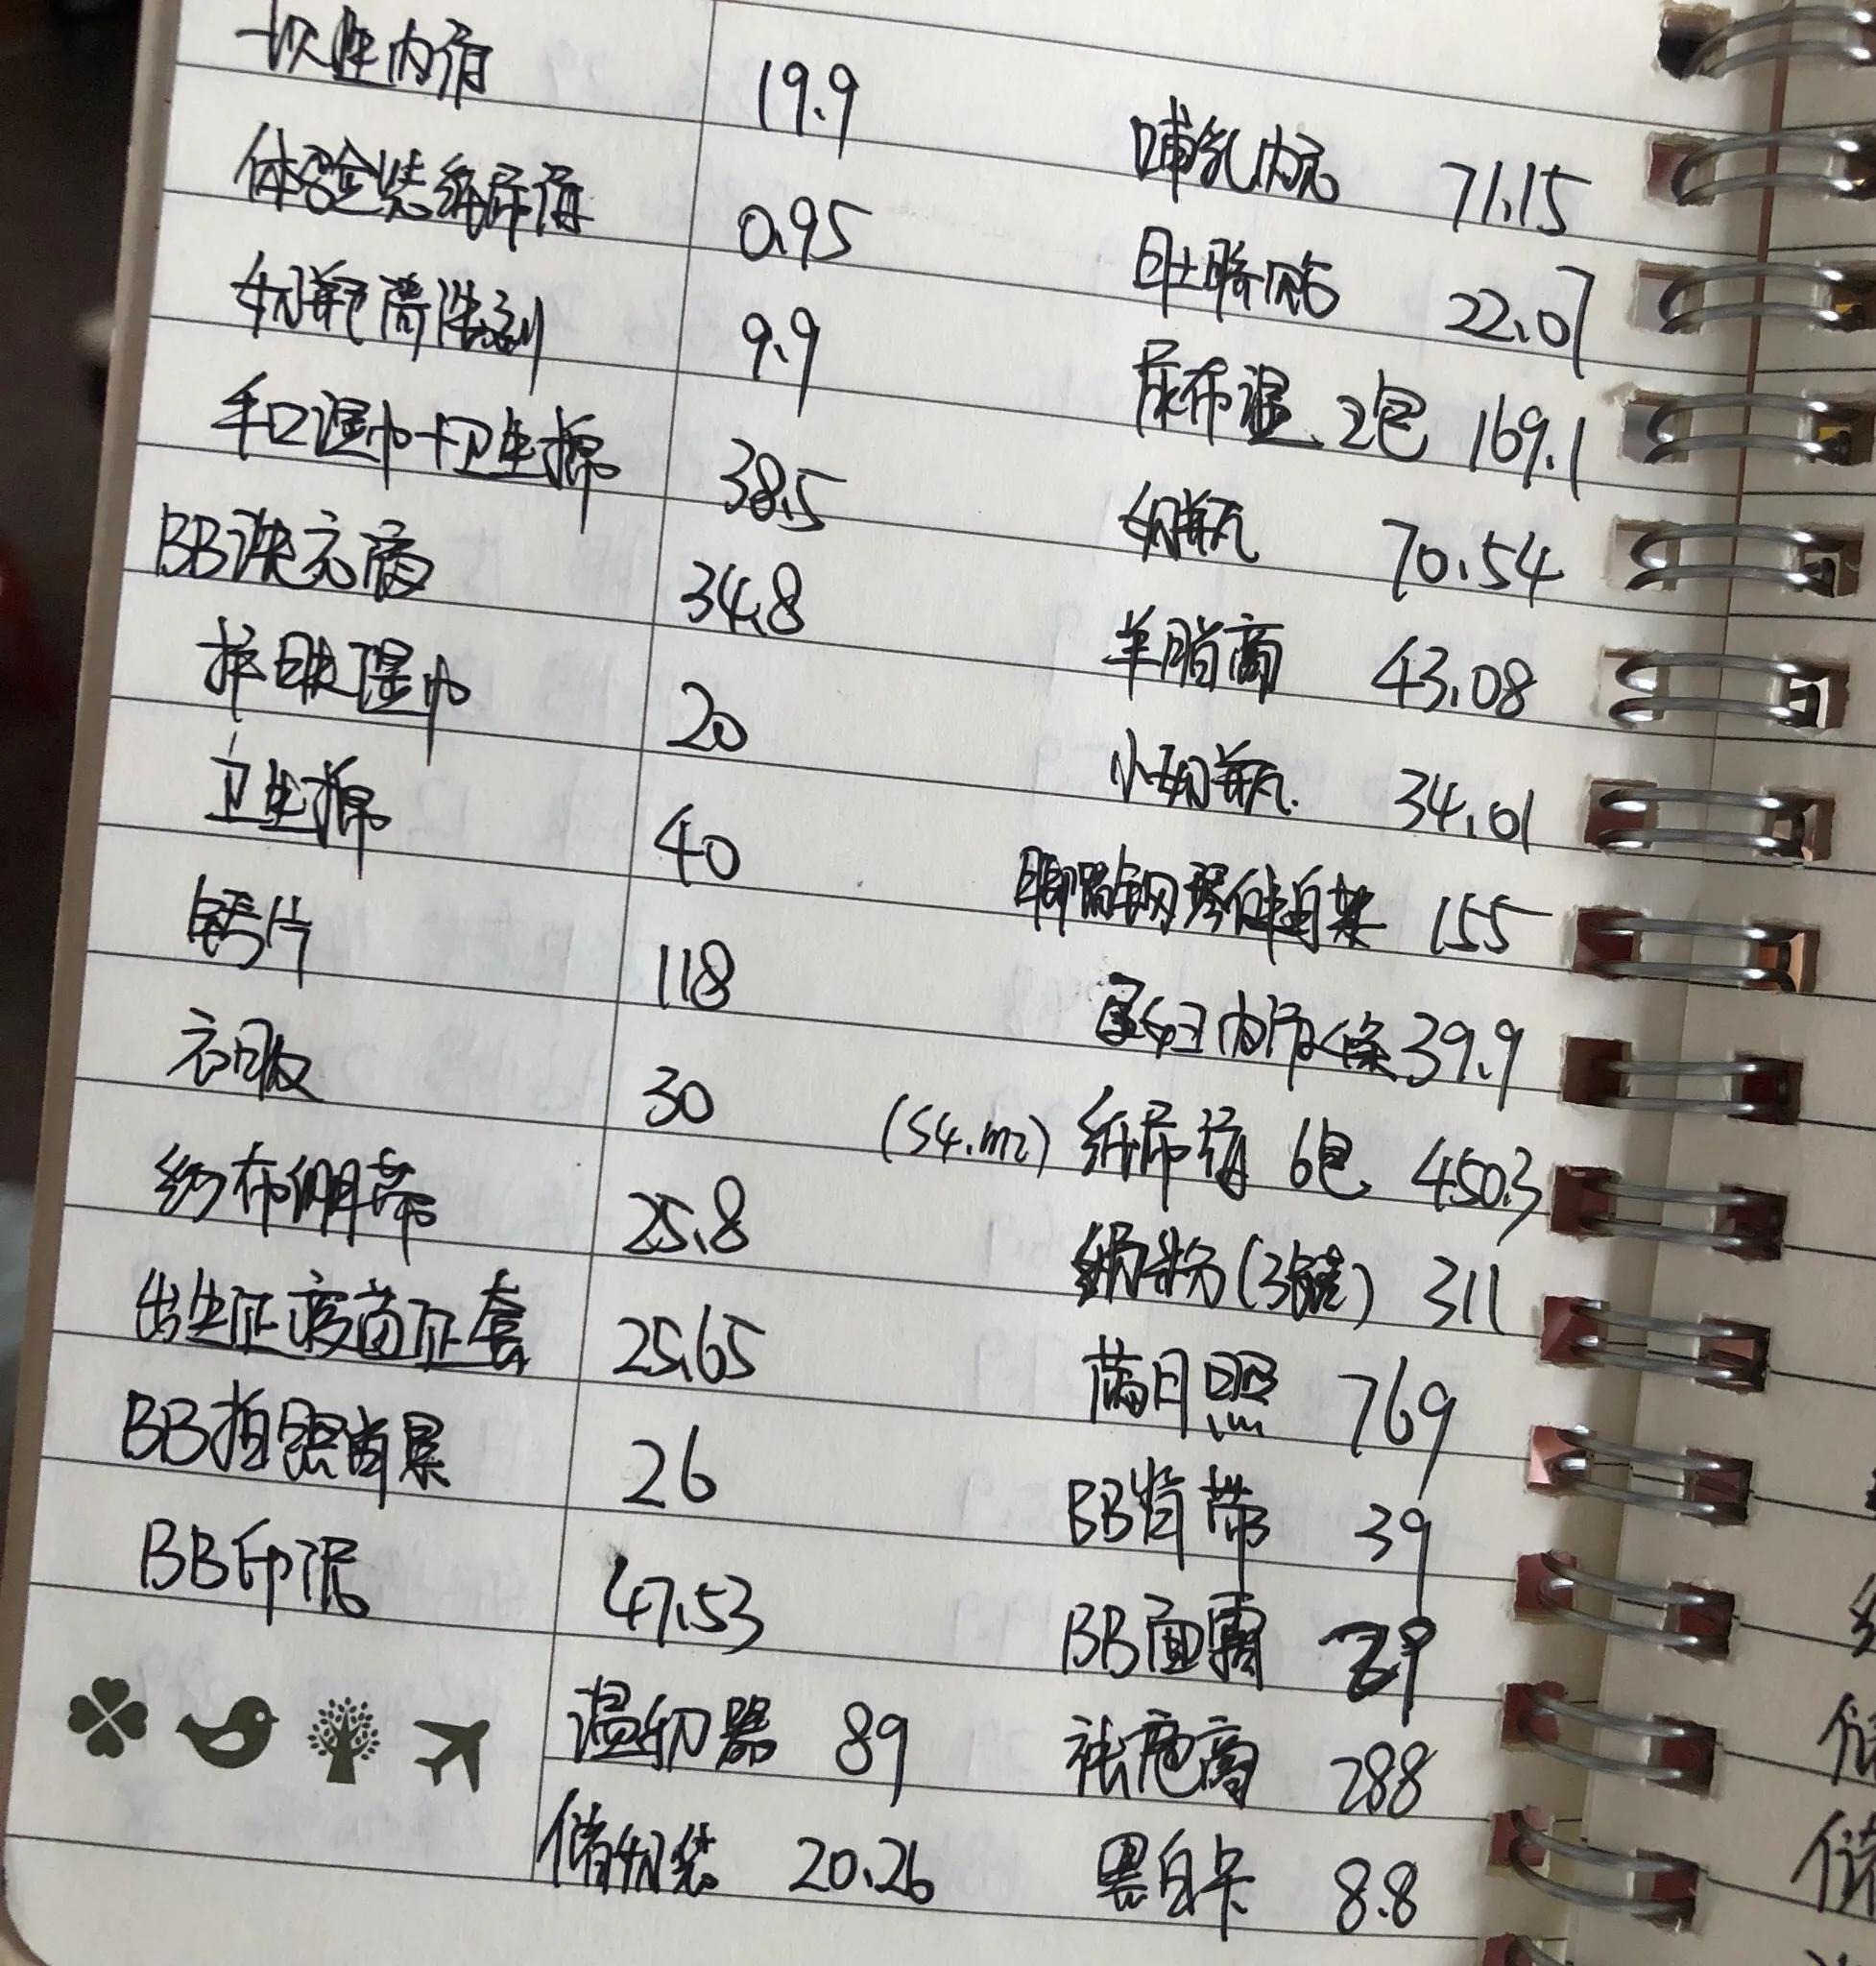 一次性内裤 19.9
体验装纸尿裤 0.95
奶瓶清洗剂 9.9
手口湿巾+卫生棉 38.5
BB洗衣液 34.8
护肤湿巾 20
卫生棉 40
钙片 118
衣服 30
纱布绷带 25.8
出生证疫苗证套 25.65
BB拍照背景 26
BB印泥 47.53
温奶器 89
储奶袋 20.26
哺乳内衣 71.15
肚脐贴 22.07
尿布湿 2包 169.1
奶瓶 70.54
羊脂膏 43.08
小奶瓶 34.01
脚踏钢琴健身架 155
孕妇内裤4条 39.9
(S4.m2) 纸尿裤 6包 450.3
奶粉(3罐) 311
满月照 769
BB背带 39
BB面霜
祛疤膏 288
黑白卡 8.8
储